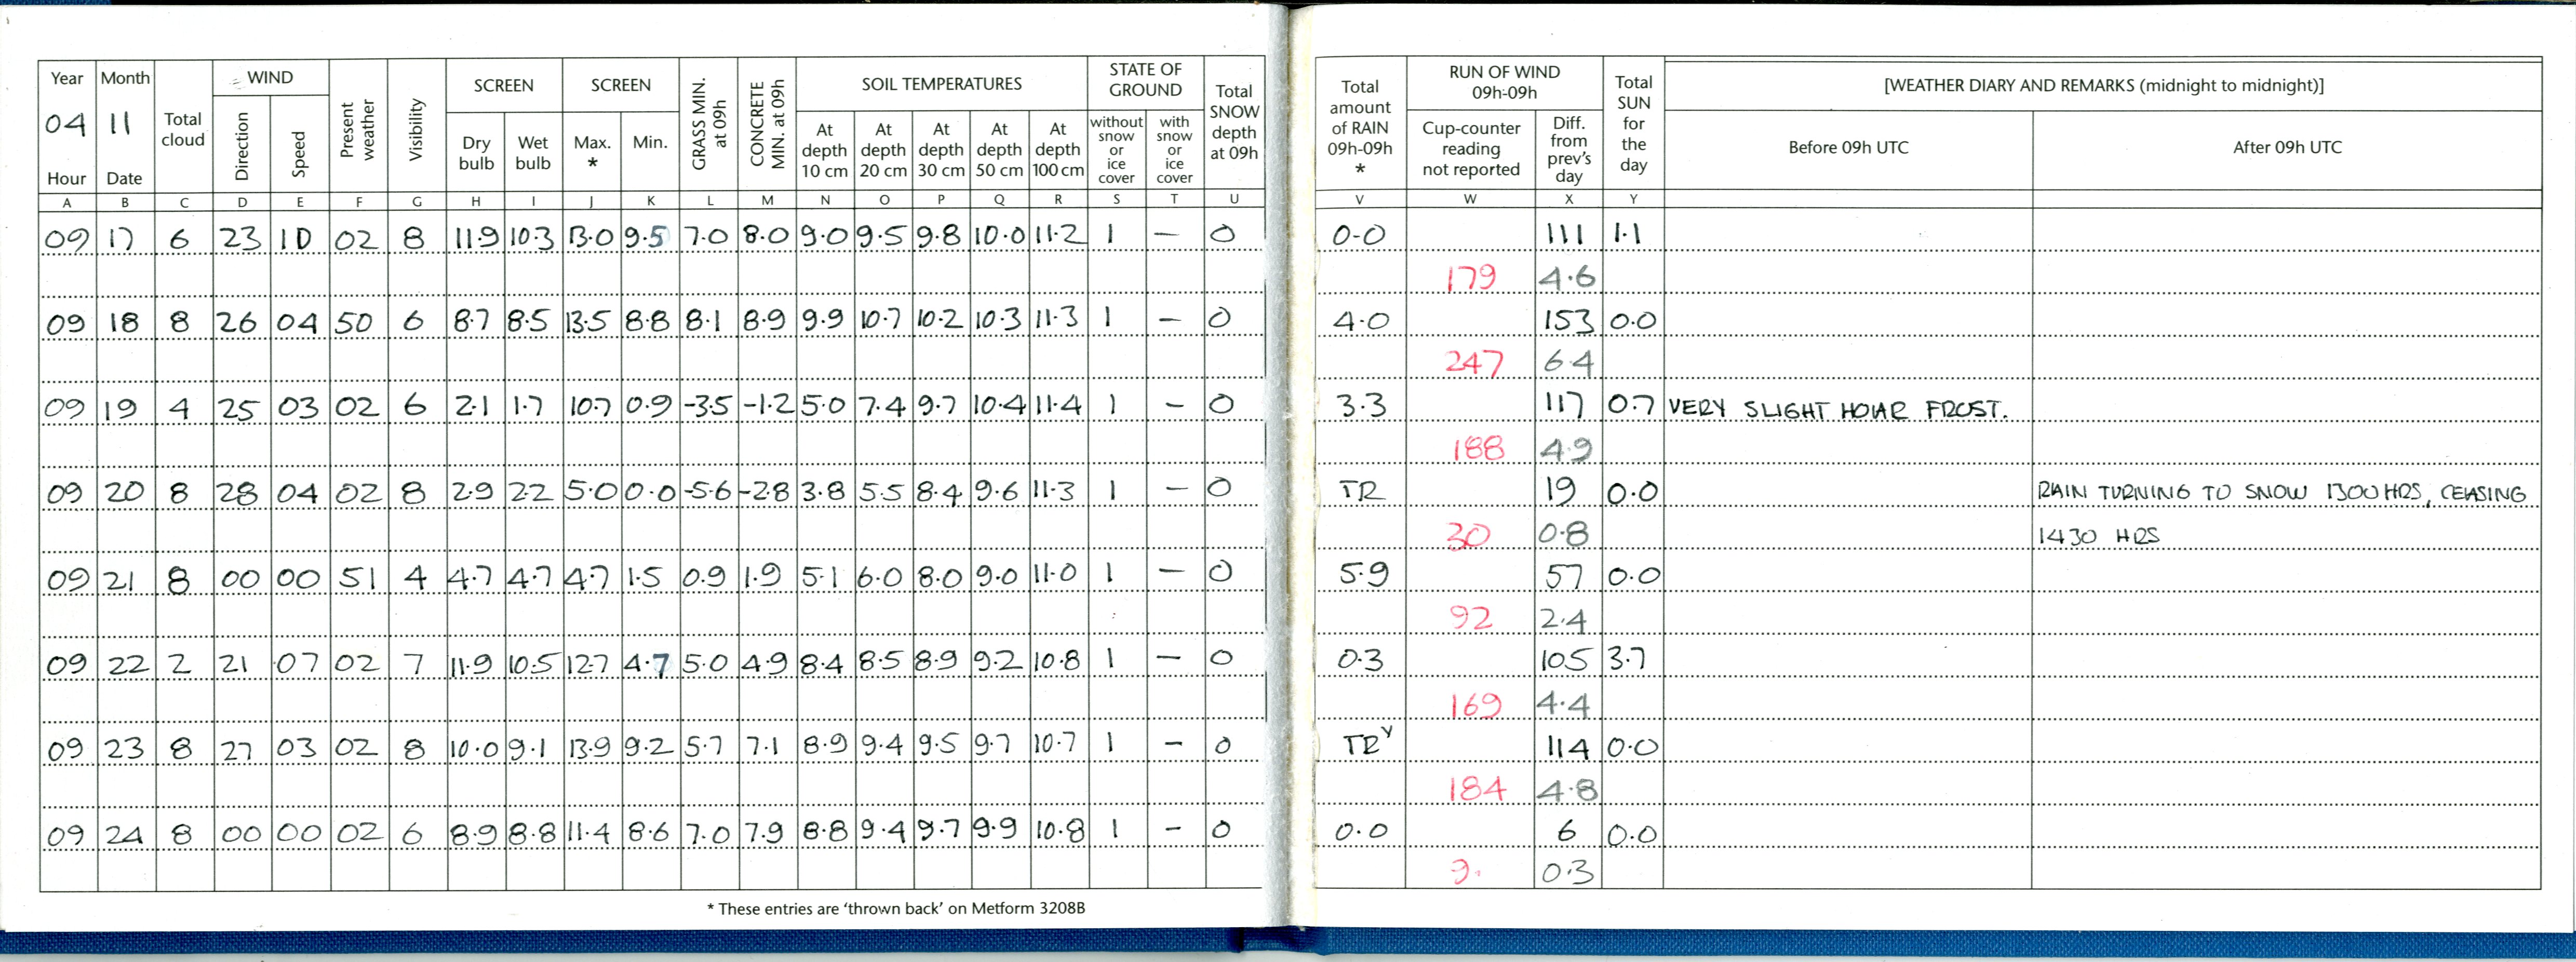 Year Month Total cloud WIND Present weather Visibility SCREEN SCREEN GRASS MIN. at 09h CONCRETE MIN. at 09h SOIL TEMPERATURES STATE OF GROUND Total SNOW depth at 09h Total amount of RAIN 09h-09h * RUN OF WIND 09h-09h Total SUN for the day [WEATHER DIARY AND REMARKS (midnight to midnight)]
04 11 Direction Speed Dry bulb Wet bulb Max. * Min. At depth 10 cm At depth 20 cm At depth 30 cm At depth 50 cm At depth 100 cm without snow or ice cover with snow or ice cover Cup-counter reading not reported Diff. from prev's day Before 09h UTC After 09h UTC
Hour Date
A B C D E F G H I J K L M N O P Q R S T U V W X Y
09 17 6 23 10 02 8 11.9 10.3 13.0 9.5 7.0 8.0 9.0 9.5 9.8 10.0 11.2 1 — 0 0.0 111 1.1
179 4.6
09 18 8 26 04 50 6 8.7 8.5 13.5 8.8 8.1 8.9 9.9 10.7 10.2 10.3 11.3 1 — 0 4.0 153 0.0
247 6.4
09 19 4 25 03 02 6 2.1 1.7 10.7 0.9 -3.5 -1.2 5.0 7.4 9.7 10.4 11.4 1 — 0 3.3 117 0.7 VERY SLIGHT HOAR FROST.
188 4.9
09 20 8 28 04 02 8 2.9 2.2 5.0 0.0 -5.6 -2.8 3.8 5.5 8.4 9.6 11.3 1 — 0 TR 19 0.0 RAIN TURNING TO SNOW 1300 HRS, CEASING
30 0.8 1430 HRS
09 21 8 00 00 51 4 4.7 4.7 4.7 1.5 0.9 1.9 5.1 6.0 8.0 9.0 11.0 1 — 0 5.9 57 0.0
92 2.4
09 22 2 21 07 02 7 11.9 10.5 12.7 4.7 5.0 4.9 8.4 8.5 8.9 9.2 10.8 1 — 0 0.3 105 3.7
169 4.4
09 23 8 27 03 02 8 10.0 9.1 13.9 9.2 5.7 7.1 8.9 9.4 9.5 9.7 10.7 1 — 0 TR Y 114 0.0
184 4.8
09 24 8 00 00 02 6 8.9 8.8 11.4 8.6 7.0 7.9 8.8 9.4 9.7 9.9 10.8 1 — 0 0.0 6 0.0
9. 0.3
* These entries are ‘thrown back’ on Metform 3208B